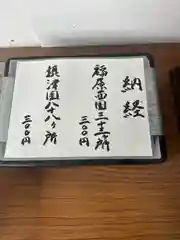 納経
福原西国三十三ヶ所
三〇〇円
摂津国八十八ヶ所
三〇〇円